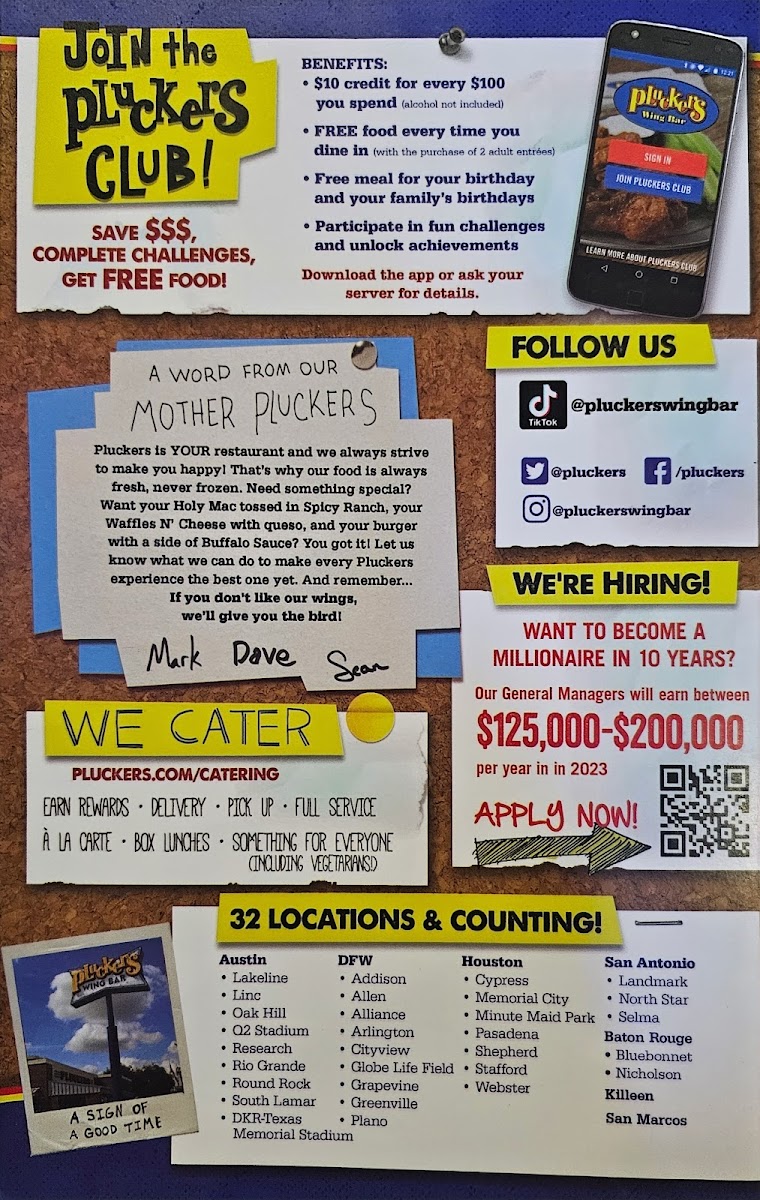 JOIN the
Pluckers
CLUB!
SAVE $$$,
COMPLETE CHALLENGES,
GET FREE FOOD!
BENEFITS:
• $10 credit for every $100
you spend (alcohol not included)
• FREE food every time you
dine in (with the purchase of 2 adult entrées)
• Free meal for your birthday
and your family's birthdays
• Participate in fun challenges
and unlock achievements
Download the app or ask your
server for details.
12:21
Pluckers
Wing Bar
SIGN IN
JOIN PLUCKERS CLUB
LEARN MORE ABOUT PLUCKERS CLUB
A WORD FROM OUR
MOTHER PLUCKERS
Pluckers is YOUR restaurant and we always strive
to make you happy! That's why our food is always
fresh, never frozen. Need something special?
Want your Holy Mac tossed in Spicy Ranch, your
Waffles N' Cheese with queso, and your burger
with a side of Buffalo Sauce? You got it! Let us
know what we can do to make every Pluckers
experience the best one yet. And remember...
If you don't like our wings,
we'll give you the bird!
Mark Dave Sean
FOLLOW US
TikTok
@pluckerswingbar
@pluckers /pluckers
@pluckerswingbar
WE'RE HIRING!
WANT TO BECOME A
MILLIONAIRE IN 10 YEARS?
Our General Managers will earn between
$125,000-$200,000
per year in in 2023
APPLY NOW!
WE CATER
PLUCKERS.COM/CATERING
EARN REWARDS • DELIVERY • PICK UP • FULL SERVICE
À LA CARTE • BOX LUNCHES • SOMETHING FOR EVERYONE
(INCLUDING VEGETARIANS!)
32 LOCATIONS & COUNTING!
Austin
• Lakeline
• Linc
• Oak Hill
• Q2 Stadium
• Research
• Rio Grande
• Round Rock
• South Lamar
• DKR-Texas
Memorial Stadium
DFW
• Addison
• Allen
• Alliance
• Arlington
• Cityview
• Globe Life Field
• Grapevine
• Greenville
• Plano
Houston
• Cypress
• Memorial City
• Minute Maid Park
• Pasadena
• Shepherd
• Stafford
• Webster
San Antonio
• Landmark
• North Star
• Selma
Baton Rouge
• Bluebonnet
• Nicholson
Killeen
San Marcos
Pluckers
WING BAR
A SIGN OF
A GOOD TIME